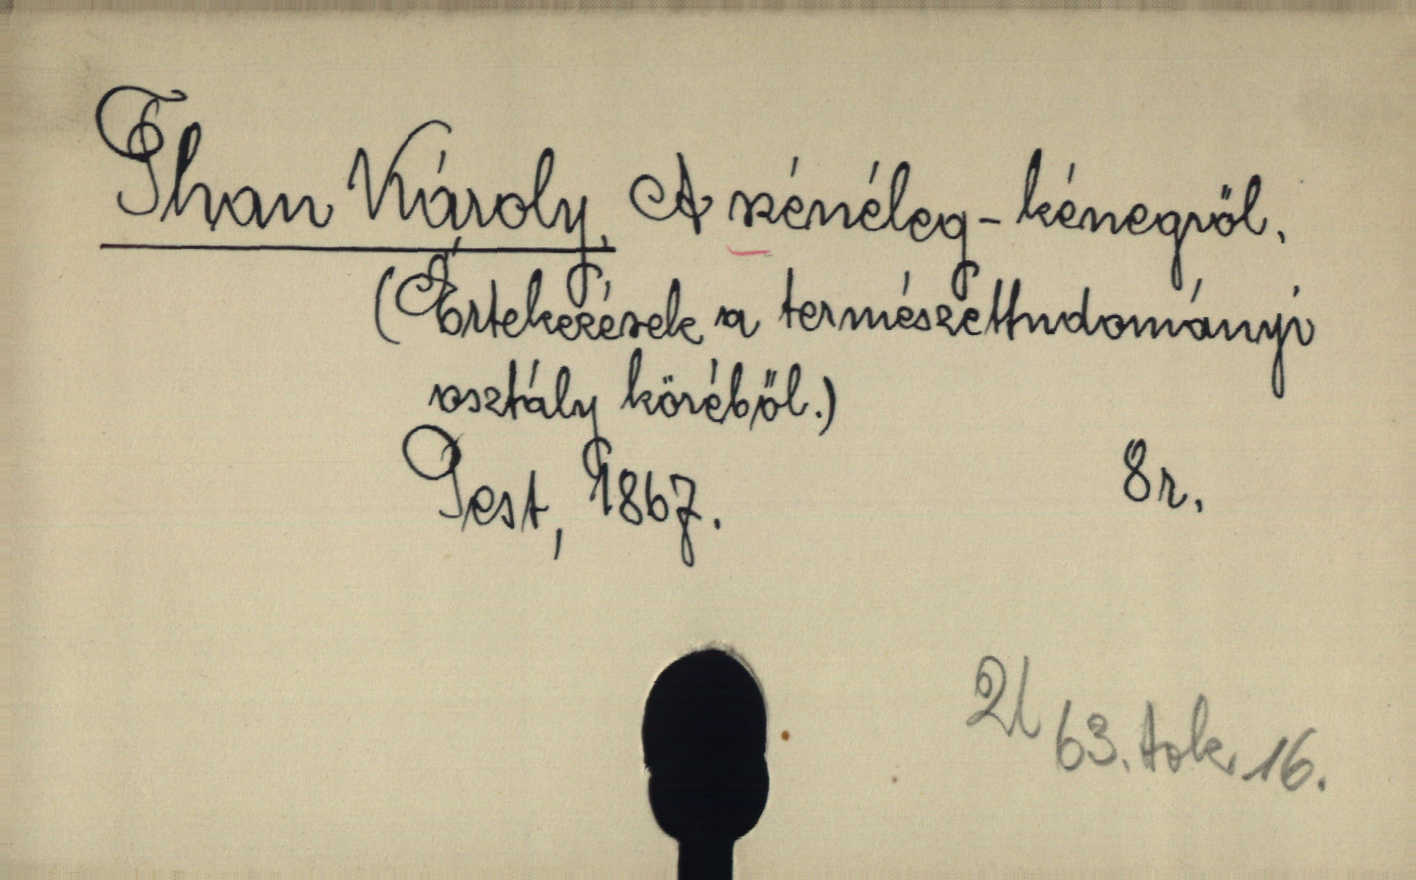 Than Károly, A szénéleg-kénegről.
(Értekezések a természettudományi
osztály köréből.)
Pest, 1867. 8r.
63. tok. 16.